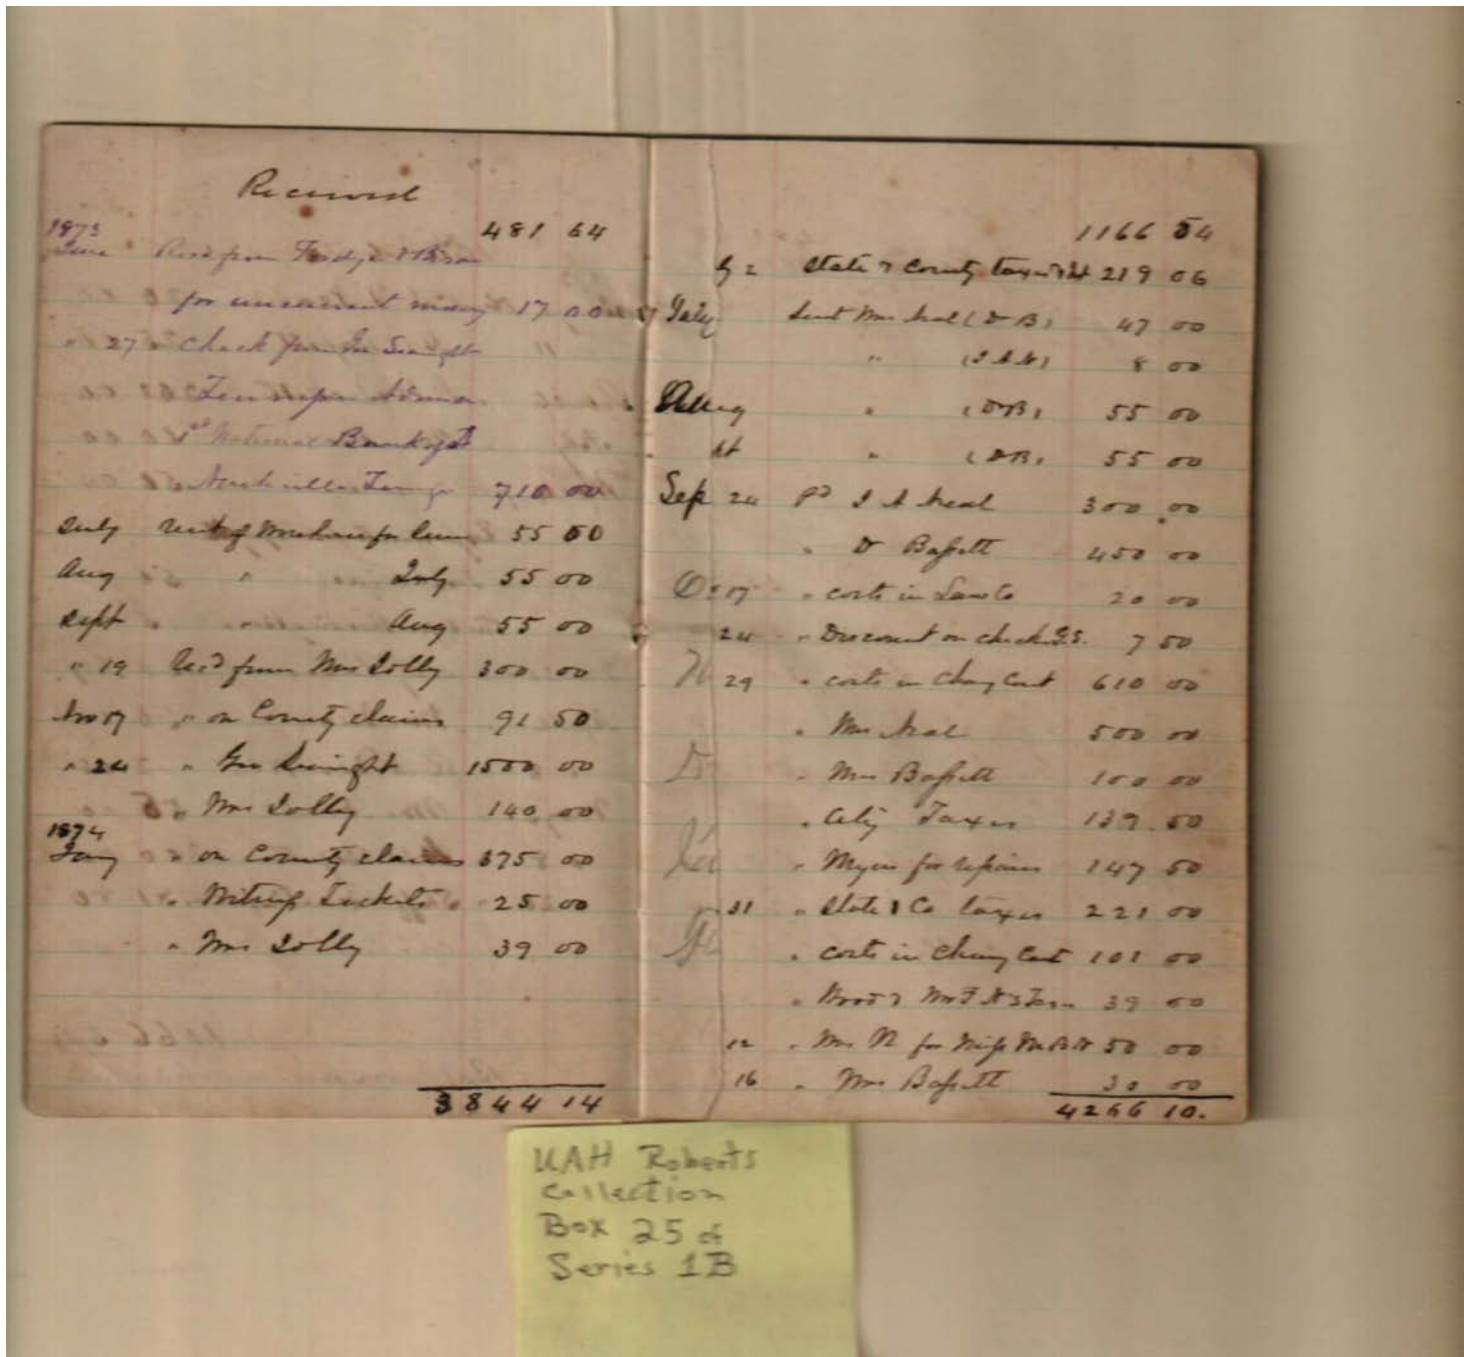 Received
481 64
1873
June Recd from
for uncurrent money 17 00
" 27 " Check from Geo
1st National Bank of
Nashville 710 00
July rent of for June 55 00
Aug " July 55 00
Sept " " Aug 55 00
" 19 Rec'd from Mrs Dolly 300 00
Nov 17 " on County claims 91 50
" 24 " Geo 1500 00
" Mrs Dolly 140 00
1874
Jany " on County claims 375 00
" 25 00
" Mrs Dolly 39 00
3844 14
1166 54
State & County taxes 219 06
July Sent Mrs Neal (D B) 47 00
" 8 00
Aug " (DB) 55 00
" (DB) 55 00
Sep 24 pd I A Neal 300 00
" D Bassett 450 00
17 " costs in 20 00
24 " Discount on check 7 50
29 " costs in Chany Court 610 00
" Mrs Neal 500 00
" Mrs Bassett 100 00
" City Taxes 139 50
" Myers for repairs 147 50
31 " State & Co taxes 221 00
" costs in Chany Court 101 00
" 39 00
12 " Mrs N for Miss 50 00
16 " Mrs Bassett 30 00
4266 10.
UAH Roberts
Collection
Box 25 of
Series 1B